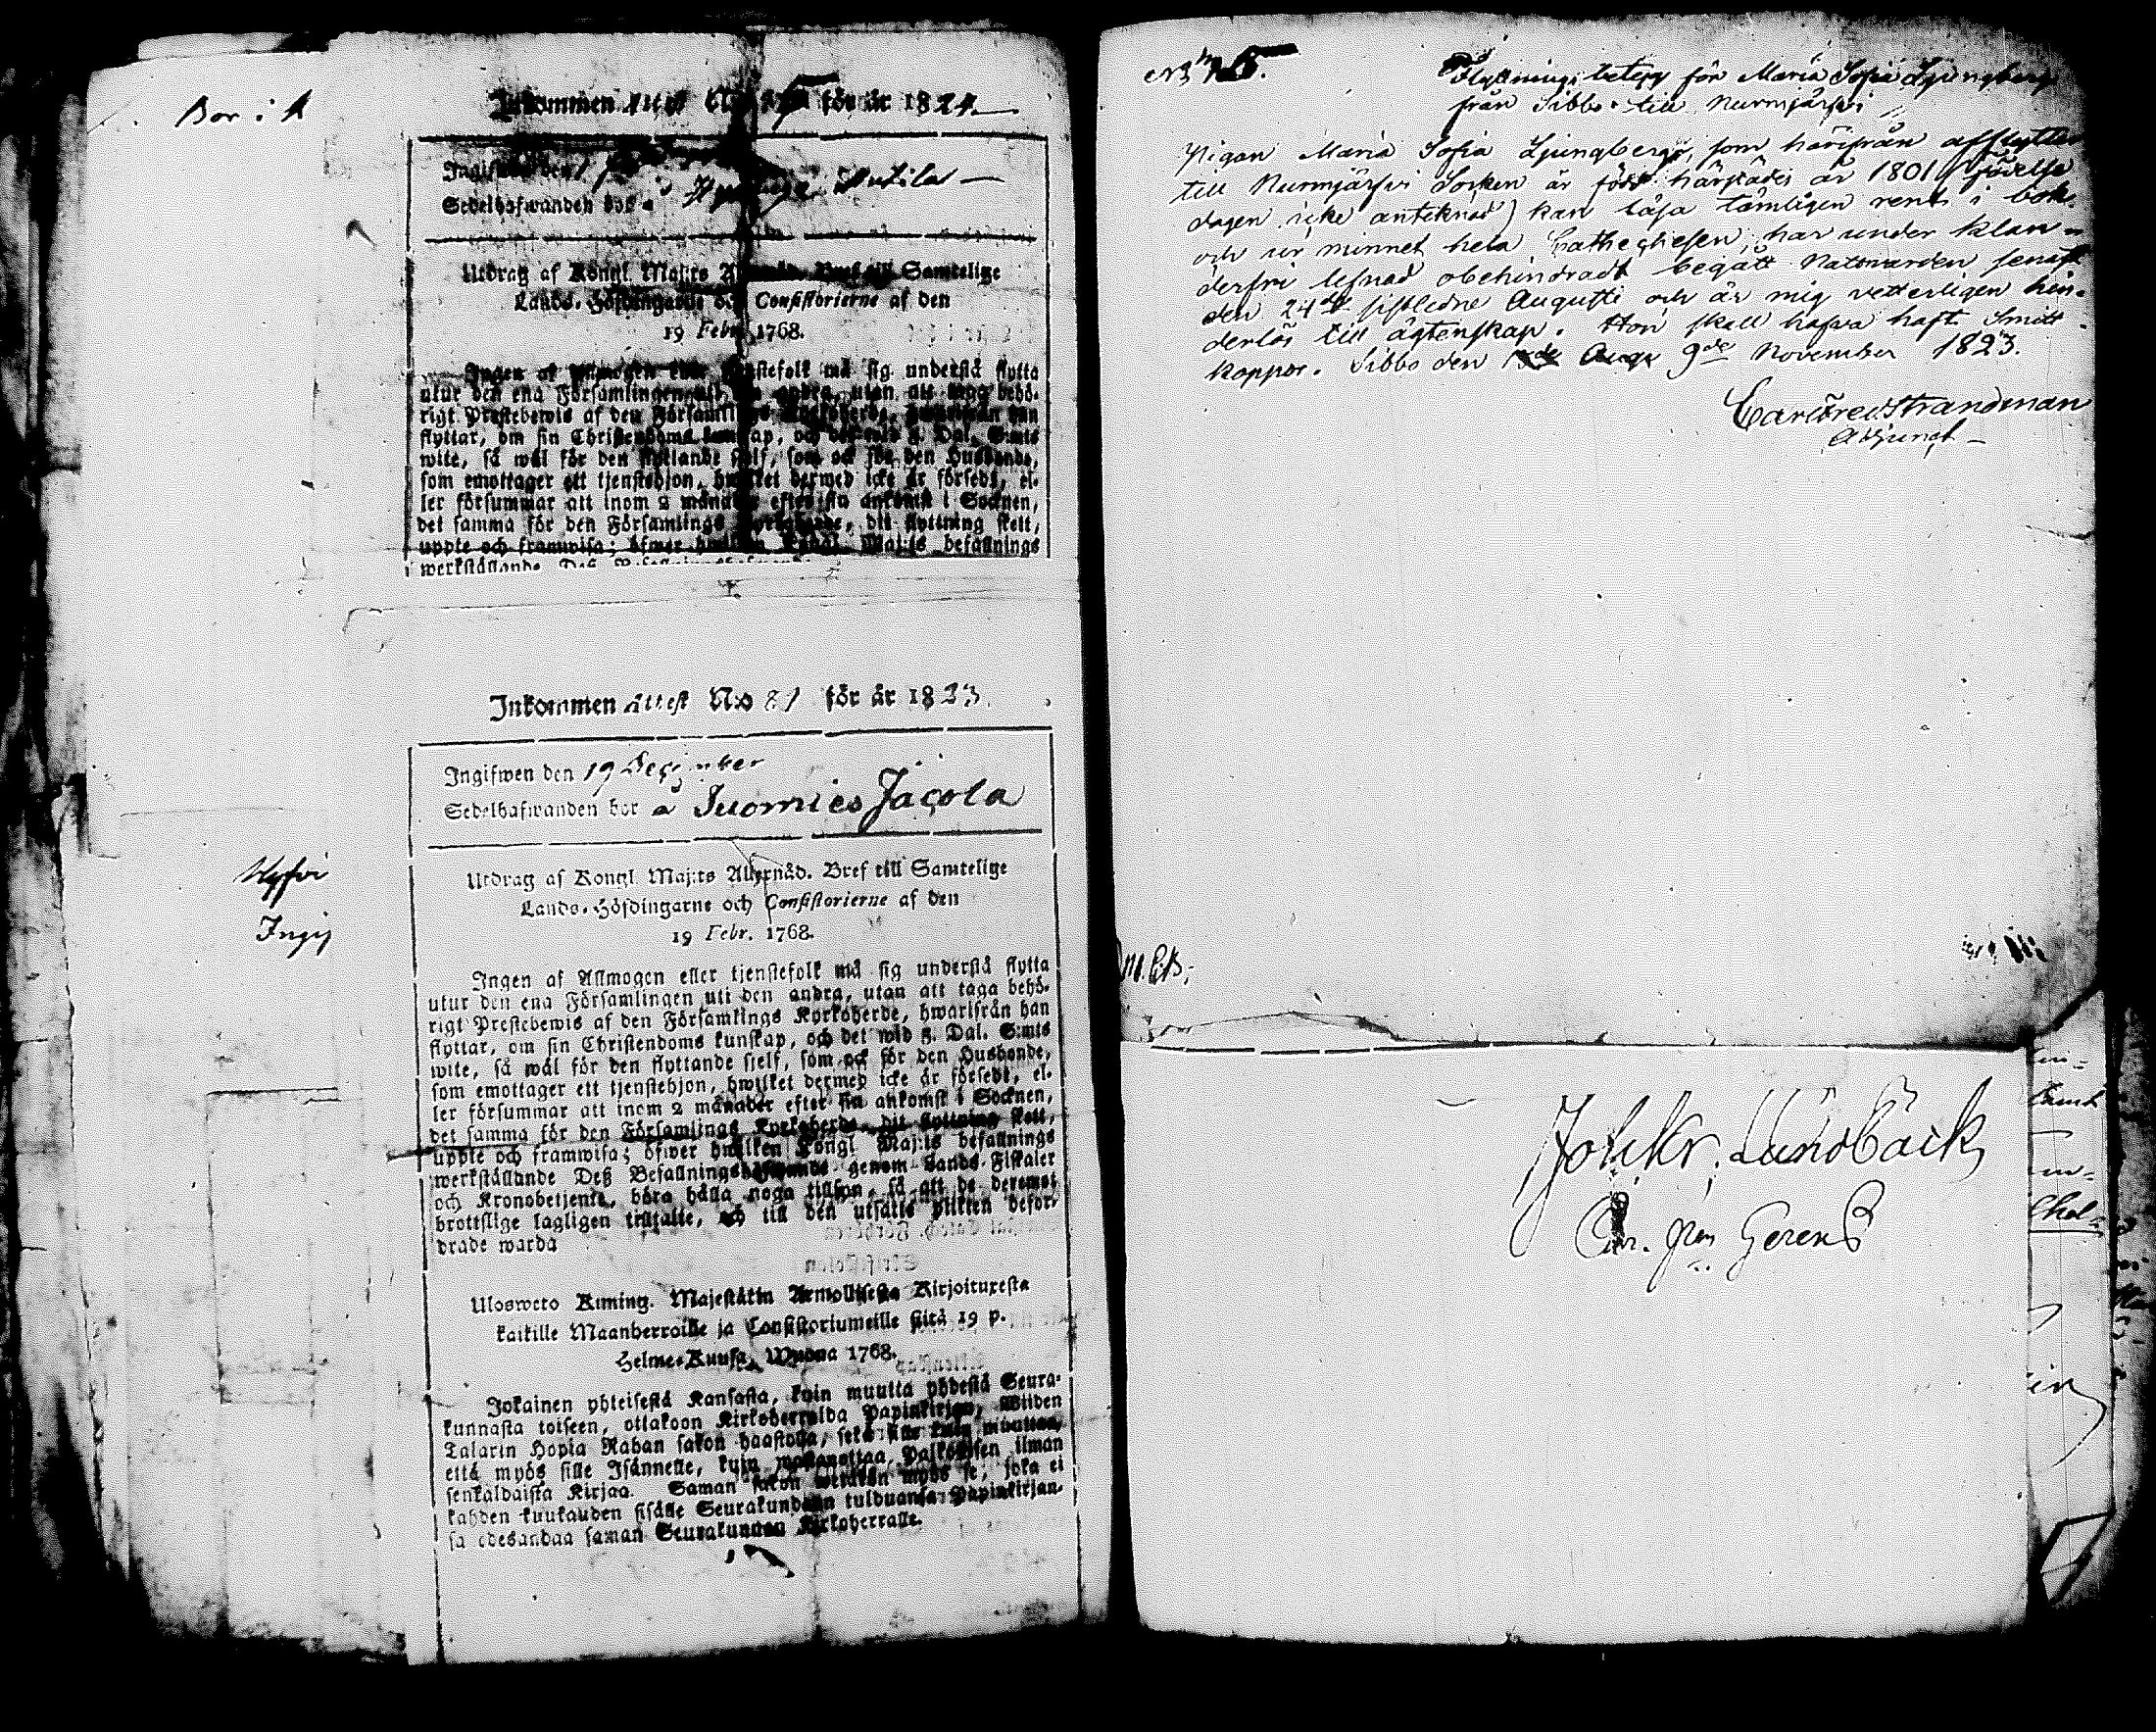 Bor i
Inkommen attest N:o för år 1824.
Ingifwen den
Sedelhafwanden bor å Nutila
Utdrag af Kongl. Maj:ts Allernåd. Bref till Samtelige
Lands-Höfdingarne och Consistorierne af den
19 Febr. 1768.
Ingen af Allmogen eller tjenstefolk må sig understå flytta
utur den ena Församlingen uti den andra, utan att taga behö-
rigt Prestebewis af den Församlings Kyrkoherde, hwarifrån han
flyttar, om sin Christendoms kunskap, och det wid 5. Dal. S:mts
wite, så wäl för den flyttande sjelf, som ock för den Husbonde,
som emottager ett tjenstehjon, hwilket dermed icke är försedt, el-
ler försummar att inom 2 månader efter sin ankomst i Socknen,
det samma för den Församlings Kyrkoherde, dit flyttning skett,
uppte och framwisa; öfwer hwilken Kongl. Maj:ts befallnings
werkställande Deß
Inkommen attest N:o 81 för år 1823.
Ingifwen den 19 December
Sedelhafwanden bor å Suomies Jacola
Hyfvi
Ingif
Utdrag af Kongl. Maj:ts Allernåd. Bref till Samtelige
Lands-Höfdingarne och Consistorierne af den
19 Febr. 1768.
Ingen af Allmogen eller tjenstefolk må sig understå flytta
utur den ena Församlingen uti den andra, utan att taga behö-
rigt Prestebewis af den Församlings Kyrkoherde, hwarifrån han
flyttar, om sin Christendoms kunskap, och det wid 5. Dal. S:mts
wite, så wäl för den flyttande sjelf, som ock för den Husbonde,
som emottager ett tjenstehjon, hwilket dermed icke är försedt, el-
ler försummar att inom 2 månader efter sin ankomst i Socknen,
det samma för den Församlings Kyrkoherde, dit flyttning skett,
uppte och framwisa; öfwer hwilken Kongl. Maj:ts befallnings
werkställande Deß Befallningshafwande genom Lands-Fiskaler
och Kronobetjente, böra hålla noga tillsyn, så att de deremot
brottslige lagligen tilltalte, och till den utsatte plikten befor-
drade warda
Ulosweto Kuning. Majestätin Armollisesta Kirjoituxesta
kaikille Maanherroille ja Consistoriumeille siitä 19 p.
Helme-Kuusa, Wuona 1768.
Jokainen yhteisestä Kansasta, kuin muutta yhdestä Seura-
kunnasta toiseen, ottakoon Kirkoherralda Papinkirjan, Wiiden
Talarin Hopia Rahan sakon haastolla, sekä sille kuin muuttaa,
että myös sille Isännelle, kuin wastanottaa Palkollisen ilman
senkaldaista Kirjaa. Saman sakon wetäkön myös se, joka ei
kahden kuukauden sisälle Seurakundaan tulduansa Papinkirjan-
sa edesandaa saman Seurakunnan Kirkoherralle.
N:o 15.
Flyttnings betyg för Maria Sofia Ljungberg
från Sibbo till Nurmijärfvi
Pigan Maria Sofia Ljungberg, som härifrån afflyttar
till Nurmjärfvi Socken är född härstädes år 1801 (födelse
dagen icke antecknad) kan läsa tämligen rent i bok
och ur minnet hela Cathechesen, har under klan-
derfri lefnad obehindradt begått Nattvarden senast
den 24de sistledne Augusti och är mig vetterligen hin-
derlös till ägtenskap. Hon skall hafva haft Smitt-
koppor. Sibbo den 9de November 1823.
Carl Fred Strandman
Adjunct
Joh Kr. Lundbäck